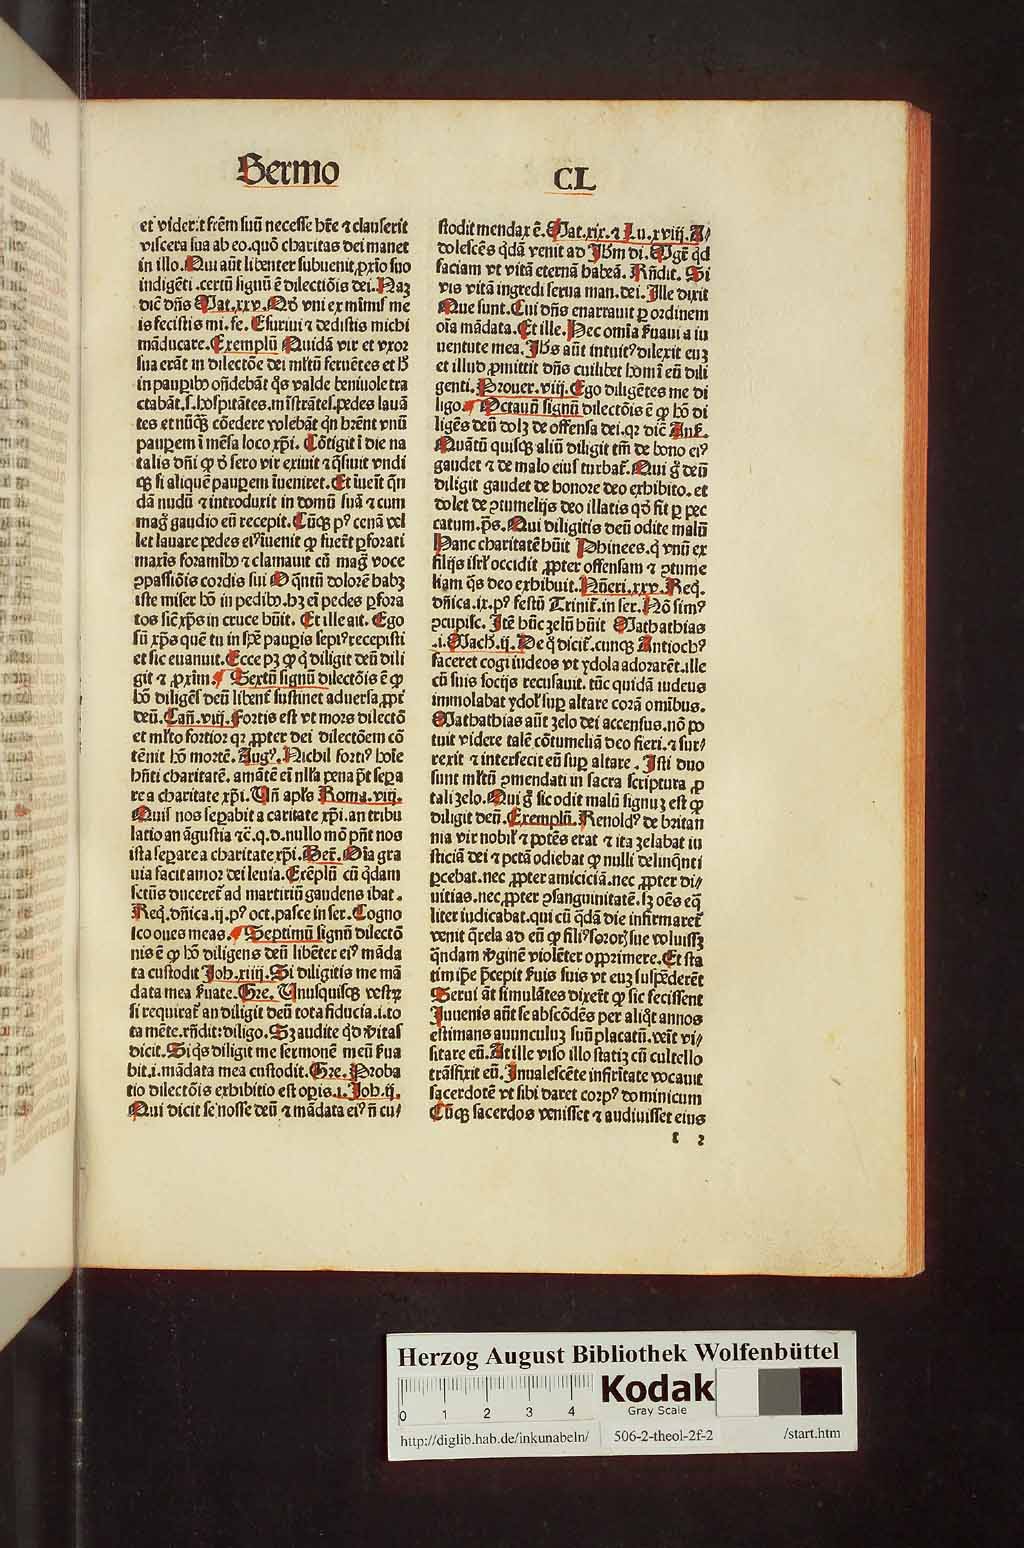 Sermo CL
et vider̄t frēm suū necesse hr̄e ⁊ clauserit
viscera sua ab eo. quō charitas dei manet
in illo. Qui aūt libenter subuenit ꝓxīo suo
indigēti. certū signū ē dilectiōis dei. Naꝫ
dic̄ dn̄s Mat. xxv. Qd̄ vni ex mīmīs me
is fecistis mi. fe. Esuriui ⁊ dedistis michi
māducare. Exemplū Quidā vir et vxor
sua erāt in dilectōe dei ml̄tū feruētes et h̄
in pauꝑibꝰ on̄debāt q̄s valde beniuole tra
ctabāt. s. hospitātes. mīstrātes. pedes lauā
tes et nūqꝫ cōedere volebāt qn̄ hr̄ent vnū
pauꝑem ī mēsa loco xp̄i. Cōtigit ī die na
talis dn̄i ꝙ ō sero vir exiuit ⁊ q̄siuit vndi
qꝫ si aliquē pauꝑem īueniret. Et īueīt q̄n
dā nudū ⁊ introduxit in domū suā ⁊ cum
maḡ gaudio eū recepit. Cūqꝫ pꝰ cenā vel
let lauare pedes eiꝰ īuenit ꝙ fuer̄t ꝑforati
maxīs foramībꝰ ⁊ clamauit cū maḡ voce
ꝯpassiōis cordis sui O q̄ntū dolorē habꝫ
iste miser hō in pedibꝰ. hꝫ eī pedes ꝑfora
tos sic̄ xp̄s in cruce būit. Et ille ait. Ego
sū xp̄s quē tu in sp̄e pauꝑis sepiꝰ recepisti
et sic euanuit. Ecce pꝫ ꝙ q̄ diligit deū dili
git ⁊ ꝓxīm. Sextū signū dilectōis ē ꝙ
hō diligēs deū libent̄ sustinet aduersa ꝓpt̄
deū. Can̄. viij. Fortis est vt mors dilectō
et ml̄to fortior qr ꝓpter dei dilectōem cō
tēnit hō mortē. Augꝰ. Nichil fortiꝰ hoīe
hn̄ti charitatē. amātē eī nll̄a pena pt̄ sepa
re a charitate xp̄i. Vn̄ apl̄s Roma. viij.
Quis nos seꝑabit a caritate xp̄i. an tribu
latio an āgustia ⁊c̄. q. d. nullo mō pn̄t nos
ista seꝑare a charitate xp̄i. Ber̄. Oīa gra
uia facit amor dei leuia. Exēplū cū q̄dam
sctūs duceret̄ ad martiriū gaudens ibat.
Req̄. dn̄ica. ij. pꝰ oct. pasce in ser. Cogno
sco oues meas. Septimū signū dilectō
nis ē ꝙ hō diligens deū libēter eiꝰ māda
ta custodit Joh. xiiij. Si diligitis me mā
data mea ẜuate. Gre. Vnusquisqꝫ vestꝝ
si requirat̄ an diligit deū tota fiducia. i. to
ta mēte. rn̄dit: diligo. Sꝫ audite qd̄ v̄itas
dicit. Si q̄s diligit me sermonē meū ẜua
bit. i. mādata mea custodit. Gre. Proba
tio dilectōis exhibitio est oꝑis. i. Joh. ij.
Qui dicit se nosse deū ⁊ mādata eiꝰ n̄ cu/
stodit mendax ē. Mat. xix. ⁊ Lu. xviij. A/
dolescēs q̄dā venit ad Jh̄m di. Mgr̄ qd̄
faciam vt vitā eternā habeā. Rn̄dit. Si
vis vitā ingredi serua man. dei. Ille dixit
Que sunt. Cui dn̄s enarrauit ꝑ ordinem
oīa mādata. Et ille. Hec omīa ẜuaui a iu
uentute mea. Jh̄s aūt intuitꝰ dilexit euꝫ
et illud ꝓmittit dn̄s cuilibet homī eū dili
genti. Prouer. viij. Ego diligētes me di
ligo. Octauū signū dilectōis ē ꝙ hō di
ligēs deū dolꝫ de offensa dei. qr dic̄ Ans̄.
Quātū quisqꝫ aliū diligit tm̄ de bono eiꝰ
gaudet ⁊ de malo eius turbat̄. Qui g̊ deū
diligit gaudet de honore deo exhibito. et
dolet de ꝯtumelijs deo illatis qd̄ fit ꝑ pec
catum. ps̄. Qui diligitis deū odite malū
Hanc charitatē hūit Phinees. q̄ vnū ex
filijs isrl̄ occidit ꝓpter offensam ⁊ ꝯtume
liam q̄s deo exhibuit. Nūeri. xxv. Req̄.
dn̄ica. ix. pꝰ festū Trinit̄. in ser. Nō simꝰ
ꝯcupisc̄. Itē hūc zelū hūit Mathathias
.i. Mach. ij. De q̊ dicit̄. cunqꝫ Antiochꝰ
faceret cogi iudeos vt ydola adorarēt. ille
cū suis socijs recusauit. tūc quidā iudeus
immolabat ydol̄ suꝑ altare corā omibus.
Mathathias aūt zelo dei accensus. nō po
tuit videre talē cōtumeliā deo fieri. ⁊ sur/
rexit ⁊ interfecit eū suꝑ altare. Isti duo
sunt ml̄tū ꝯmendati in sacra scriptura ꝓ
tali zelo. Qui g̊ sic odit malū signuꝫ est ꝙ
diligit deū. Exemplū. Renoldꝰ de britan
nia vir nobil̄ ⁊ potēs erat ⁊ ita zelabat iu
sticiā dei ⁊ pctā odiebat ꝙ nulli delinq̄nti
ꝑcebat. nec ꝓpter amiciciā. nec ꝓpter di/
uitias. nec ꝓpter ꝯsanguinitatē. sꝫ oēs eq̄
liter iudicabat. qui cū q̄dā die infirmaret̄
venit q̄rela ad eū ꝙ filiꝰ sororꝭ sue voluissꝫ
q̄ndam v̄ginē violēter opprimere. Et sta
tim ip̄e p̄cepit ẜuis suis vt euꝫ suspēderēt
Serui āt simulātes dixer̄t ꝙ sic fecissent
Juuenis aūt se abscōdēs per aliq̊t annos
estimans auunculuꝫ suū placatū. veīt vi/
sitare eū. At ille viso illo statiꝫ cū cultello
trāsfixit eū. Inualescēte infirītate vocauit
sacerdotē vt sibi daret corpꝰ dominicum
Cūqꝫ sacerdos venisset ⁊ audiuisset eius
Herzog August Bibliothek Wolfenbüttel
0 1 2 3 4
Kodak
Gray Scale
http://diglib.hab.de/inkunabeln/ 506-2-theol-2f-2 /start.htm